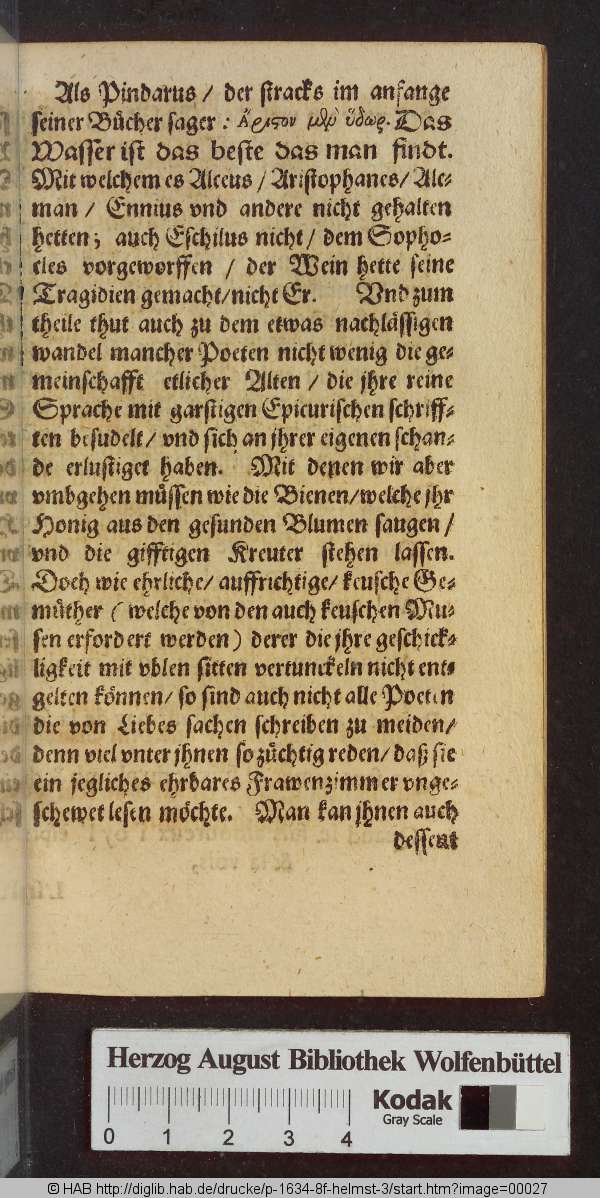 Als Pindarus / der stracks im anfange
seiner Bücher saget : Ἄριϛον μὲν ὕδωρ. Das
Wasser ist das beste das man findt.
Mit welchem es Alceus / Aristophanes / Alc-
man / Ennius vnd andere nicht gehalten
hetten; auch Eschilus nicht / dem Sopho-
cles vorgeworffen / der Wein hette seine
Tragidien gemacht / nicht Er. Vnd zum
theile thut auch zu dem etwas nachlässigen
wandel mancher Poeten nicht wenig die ge-
meinschafft etlicher Alten / die jhre reine
Sprache mit garstigen Epicurischen schriff-
ten besudelt / vnd sich an jhrer eigenen schan-
de erlustiget haben. Mit denen wir aber
vmbgehen müssen wie die Bienen / welche jhr
Honig aus den gesunden Blumen saugen /
vnd die gifftigen Kreuter stehen lassen.
Doch wie ehrliche / auffrichtige / keusche Ge-
müther ( welche von den auch keuschen Mu-
sen erfordert werden ) derer die jhre geschick-
ligkeit mit vblen sitten vertunckeln nicht ent-
gelten können / so sind auch nicht alle Poeten
die von Liebes sachen schreiben zu meiden /
denn viel vnter jhnen so züchtig reden / daß sie
ein jegliches ehrbares Frawenzimmer vnge-
schewet lesen möchte. Man kan jhnen auch
dessent
Herzog August Bibliothek Wolfenbüttel
Kodak
Gray Scale
0 1 2 3 4
© HAB http://diglib.hab.de/drucke/p-1634-8f-helmst-3/start.htm?image=00027